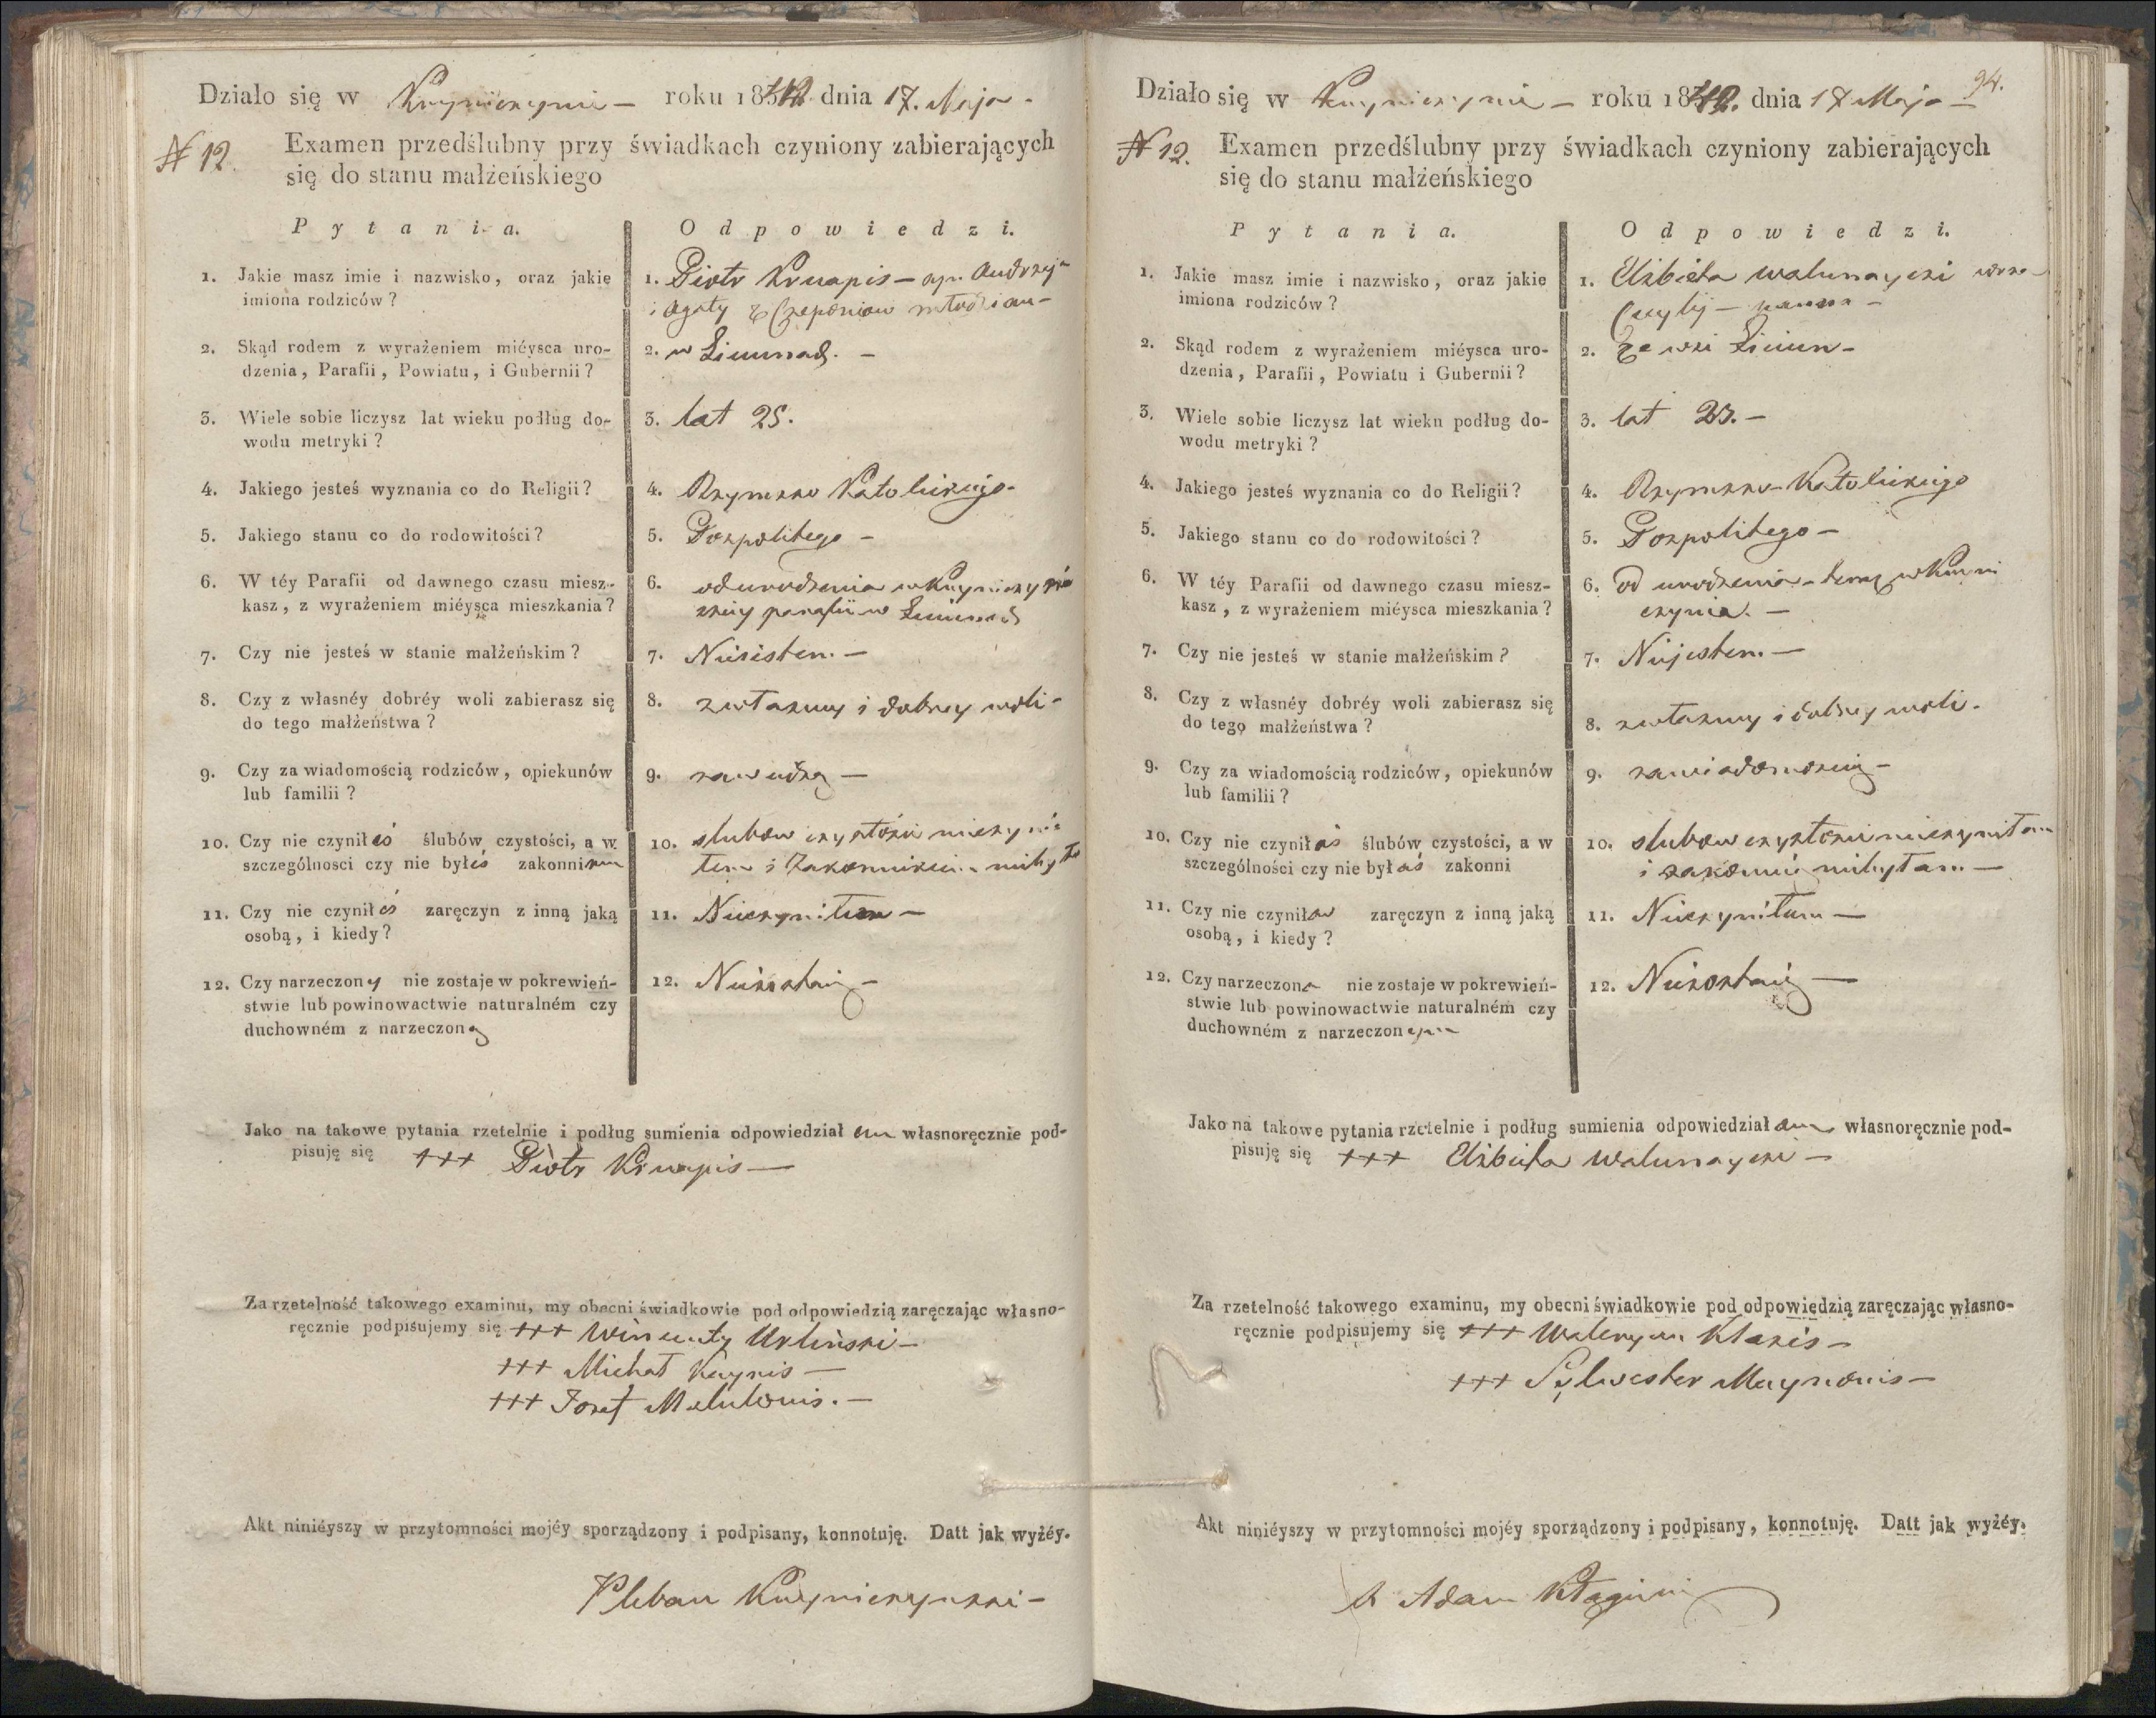 Działo się w Knyniczynie – roku 1842. dnia 17. Maja –
N 12. Examen przedślubny przy świadkach czyniony zabierających
się do stanu małżeńskiego
Pytania.
Odpowiedzi.
1. Jakie masz imie i nazwisko, oraz jakie
imiona rodziców?
1. Piotr Knapis – syn Andrzeja
i Agaty z młodzian –
2. Skąd rodem z wyrażeniem miéysca uro-
dzenia, Parafii, Powiatu, i Gubernii?
2. w –
3. Wiele sobie liczysz lat wieku podług do-
wodu metryki?
3. lat 25.
4. Jakiego jesteś wyznania co do Religii?
4. Rzymsko Katolickiego –
5. Jakiego stanu co do rodowitości?
5. Pospolitego –
6. W téy Parafii od dawnego czasu miesz-
kasz, z wyrażeniem miéysca mieszkania?
6. od urodzenia w
parafii w
7. Czy nie jesteś w stanie małżeńskim?
7. Niejestem. –
8. Czy z własnéy dobréy woli zabierasz się
do tego małżeństwa?
8. z własney i dobrey woli –
9. Czy za wiadomością rodziców, opiekunów
lub familii?
9. za wiedzą –
10. Czy nie czyniłeś ślubów czystości, a w
szczególnosci czy nie byłeś zakonnikiem
10. slubow czystości nieczyni-
łem i Zakonnikiem niebył
11. Czy nie czyniłeś zaręczyn z inną jaką
osobą, i kiedy?
11. Nieczyniłem –
12. Czy narzeczony nie zostaje w pokrewień-
stwie lub powinowactwie naturalném czy
duchowném z narzeczoną
12. Niezostaię –
Jako na takowe pytania rzetelnie i podług sumienia odpowiedziałem własnoręcznie pod-
pisuję się +++ Piotr Knapis –
Za rzetelność takowego examinu, my obecni świadkowie pod odpowiedzią zaręczając własno-
ręcznie podpisujemy się +++ Wincenty Urliński –
+++ Michał –
+++ Josef –
Akt niniéyszy w przytomności mojéy sporządzony i podpisany, konnotuję. Datt jak wyżéy.
Pleban Knyniczynski –
94.
Działo się w Knyniczynie – roku 1842. dnia 17 Maja –
N 12. Examen przedślubny przy świadkach czyniony zabierających
się do stanu małżeńskiego
Pytania.
Odpowiedzi.
1. Jakie masz imie i nazwisko, oraz jakie
imiona rodziców?
1. Elżbieta
Cecylij – panna –
2. Skąd rodem z wyrażeniem miéysca uro-
dzenia, Parafii, Powiatu i Gubernii?
2. ze wsi –
3. Wiele sobie liczysz lat wieku podług do-
wodu metryki?
3. lat 23. –
4. Jakiego jesteś wyznania co do Religii?
4. Rzymsko – Katolickiego
5. Jakiego stanu co do rodowitości?
5. Pospolitego –
6. W téy Parafii od dawnego czasu miesz-
kasz, z wyrażeniem miéysca mieszkania?
6. od urodzenia – teraz w Knyni
czynie. –
7. Czy nie jesteś w stanie małżeńskim?
7. Niejestem. –
8. Czy z własnéy dobréy woli zabierasz się
do tego małżeństwa?
8. z własney i dobrey woli.
9. Czy za wiadomością rodziców, opiekunów
lub familii?
9. za wiadomością –
10. Czy nie czyniłaś ślubów czystości, a w
szczególności czy nie byłaś zakonni
10. slubow czystości nieczyniłam
i zakonnicą niebyłam –
11. Czy nie czyniłaś zaręczyn z inną jaką
osobą, i kiedy?
11. Nieczyniłam –
12. Czy narzeczona nie zostaje w pokrewień-
stwie lub powinowactwie naturalném czy
duchowném z narzeczonym
12. Niezostaię –
Jako na takowe pytania rzetelnie i podług sumienia odpowiedziałam własnoręcznie pod-
pisuję się +++ Elżbieta –
Za rzetelność takowego examinu, my obecni świadkowie pod odpowiedzią zaręczając własno-
ręcznie podpisujemy się +++ Waleryan –
+++ Sylwester –
Akt niniéyszy w przytomności mojéy sporządzony i podpisany, konnotuję. Datt jak wyżéy.
Adam